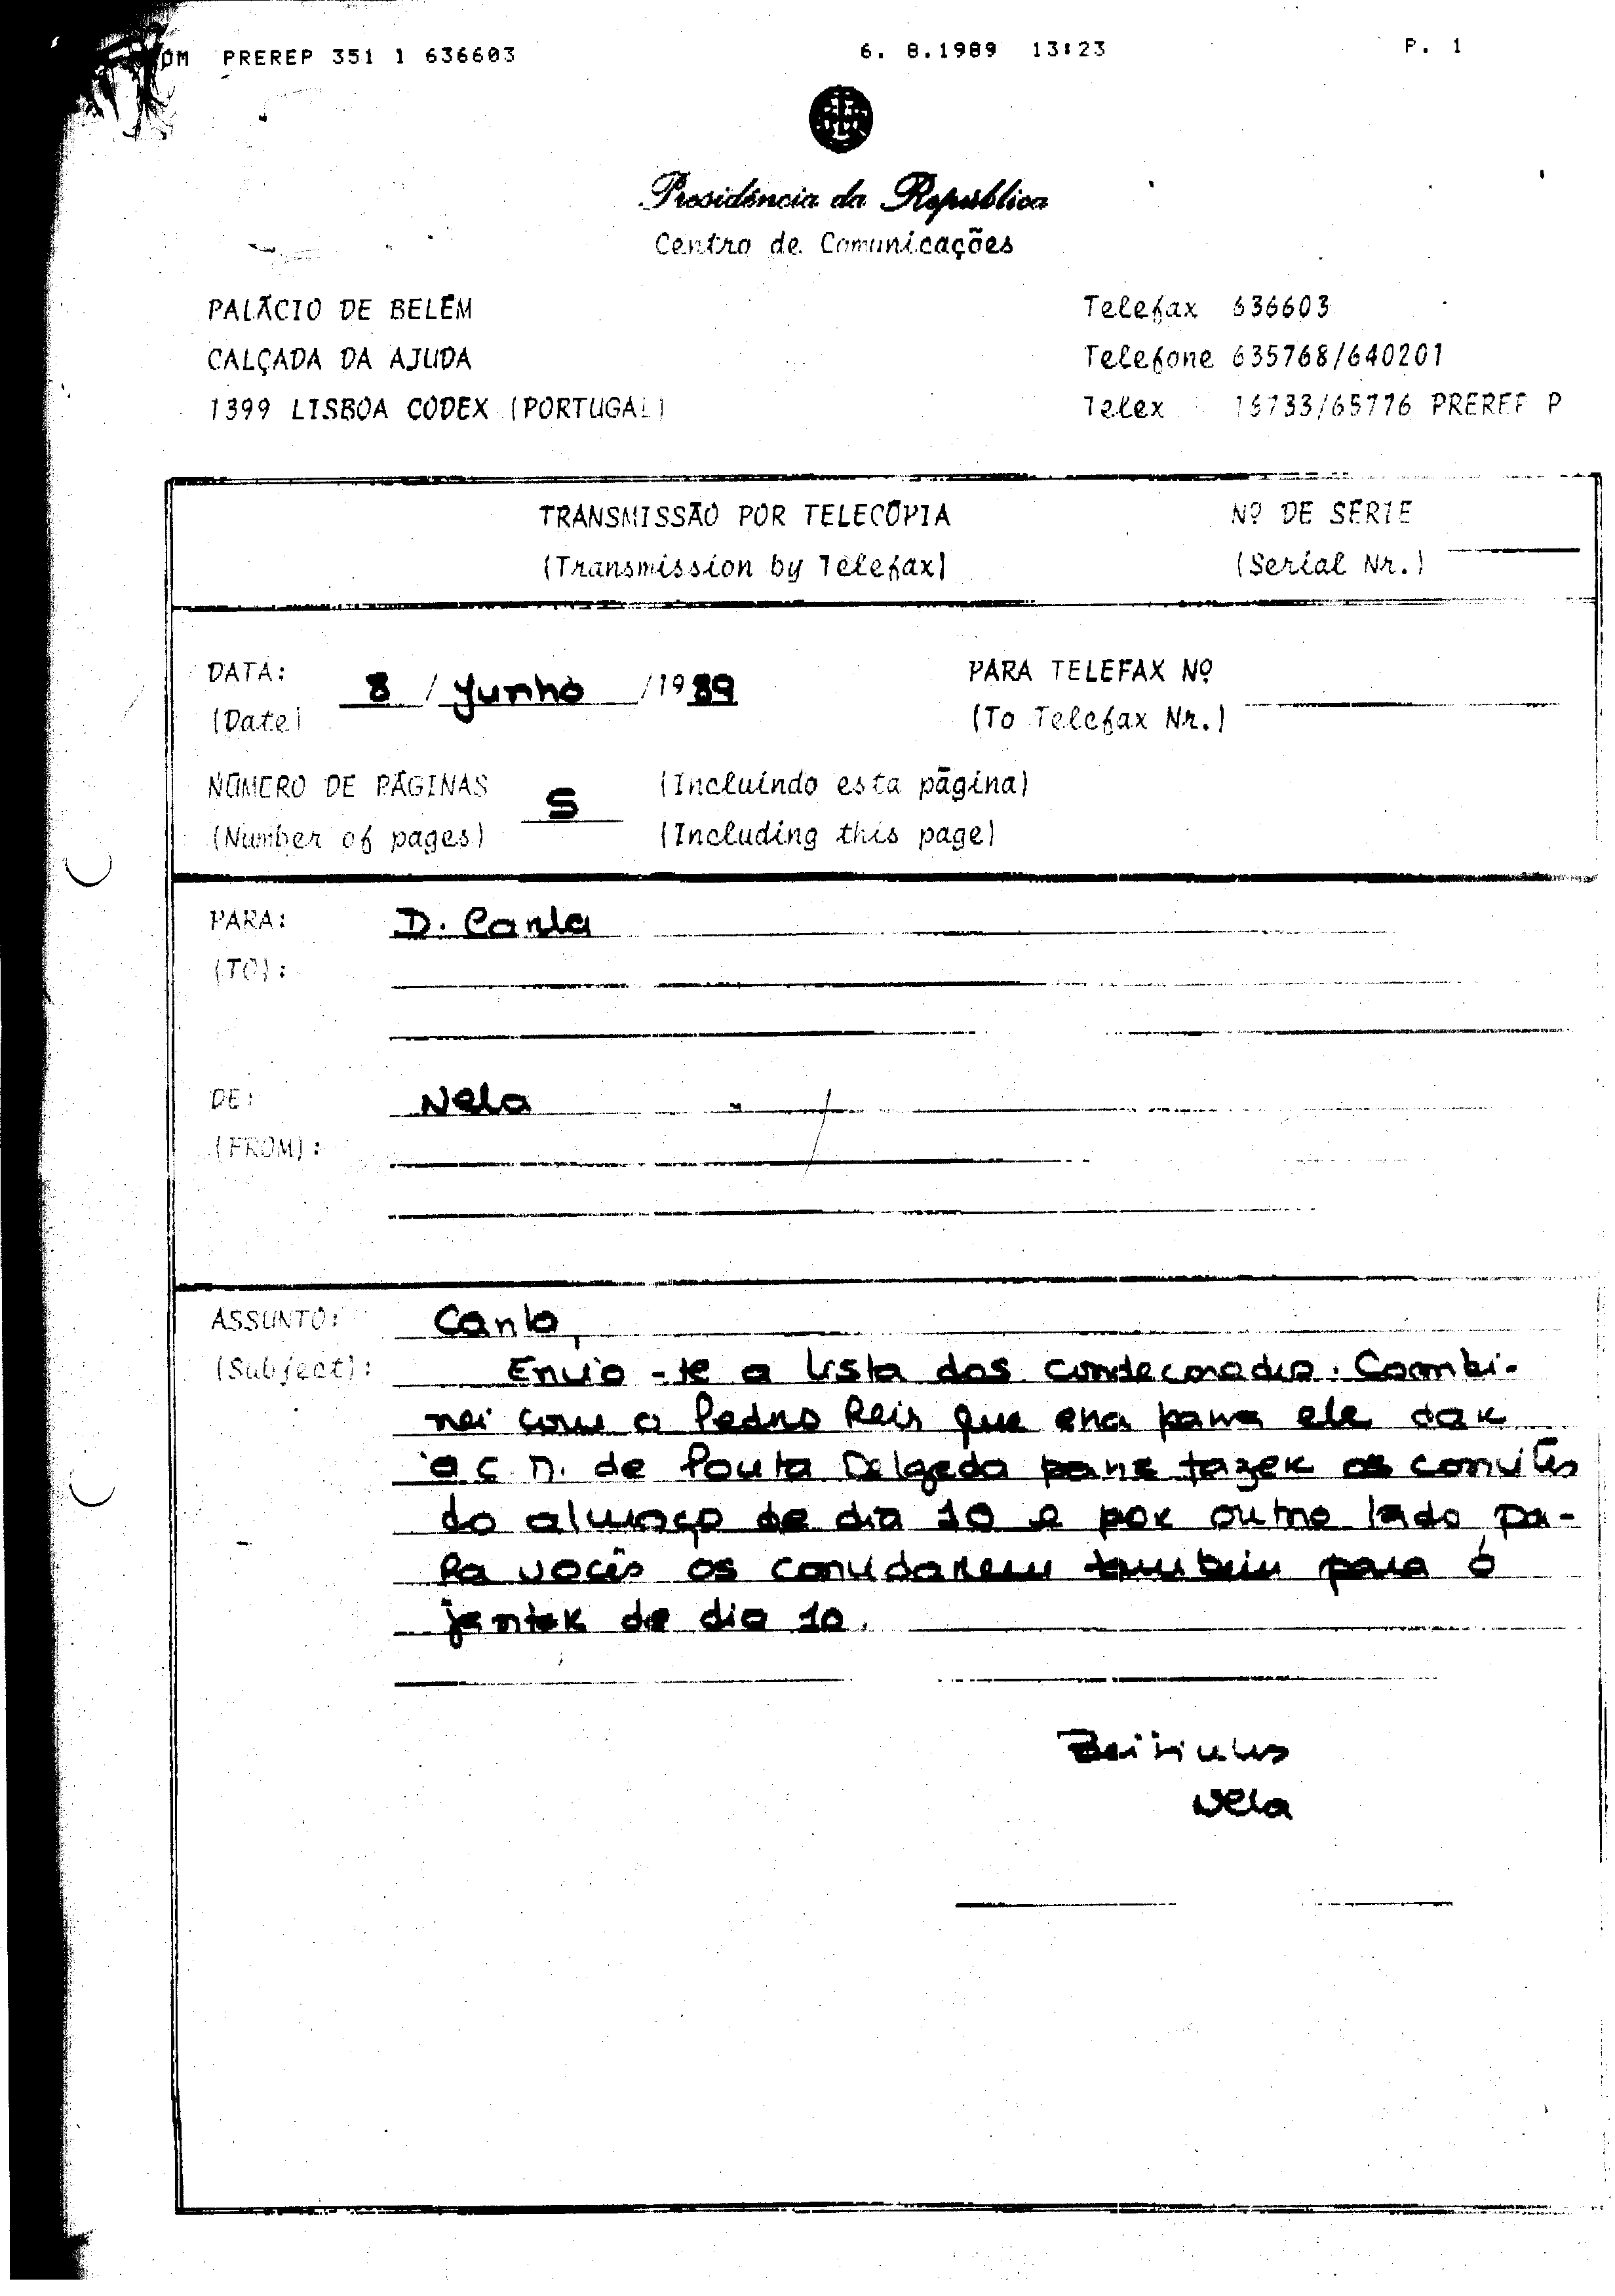 OM PREREP 351 1 636603 6. 8.1989 13:23 P. 1
Presidência da República
Centro de Comunicações
PALÁCIO DE BELÉM Telefax 636603
CALÇADA DA AJUDA Telefone 635768/640201
1399 LISBOA CODEX (PORTUGAL) Telex PREREP P
TRANSMISSÃO POR TELECÓPIA Nº DE SÉRIE
(Transmission by Telefax) (Serial Nr.)
DATA: 8 / Junho /1989 PARA TELEFAX Nº
(Date) (To Telefax Nr.)
NÚMERO DE PÁGINAS 5 (Incluindo esta página)
(Number of pages) (Including this page)
PARA: D. Carla
(TO):
DE: Nela
(FROM):
ASSUNTO: Carla,
(Subject): Envio-te a lista dos condecorados. Coombi-
nei com o Pedro Reis que era para ele dar
à C. M. de Ponta Delgada para fazer os convites
do almoço de dia 10 e por outro lado pa-
ra vocês os convidarem também para o
jantar de dia 10.
Beijinhos
Nela